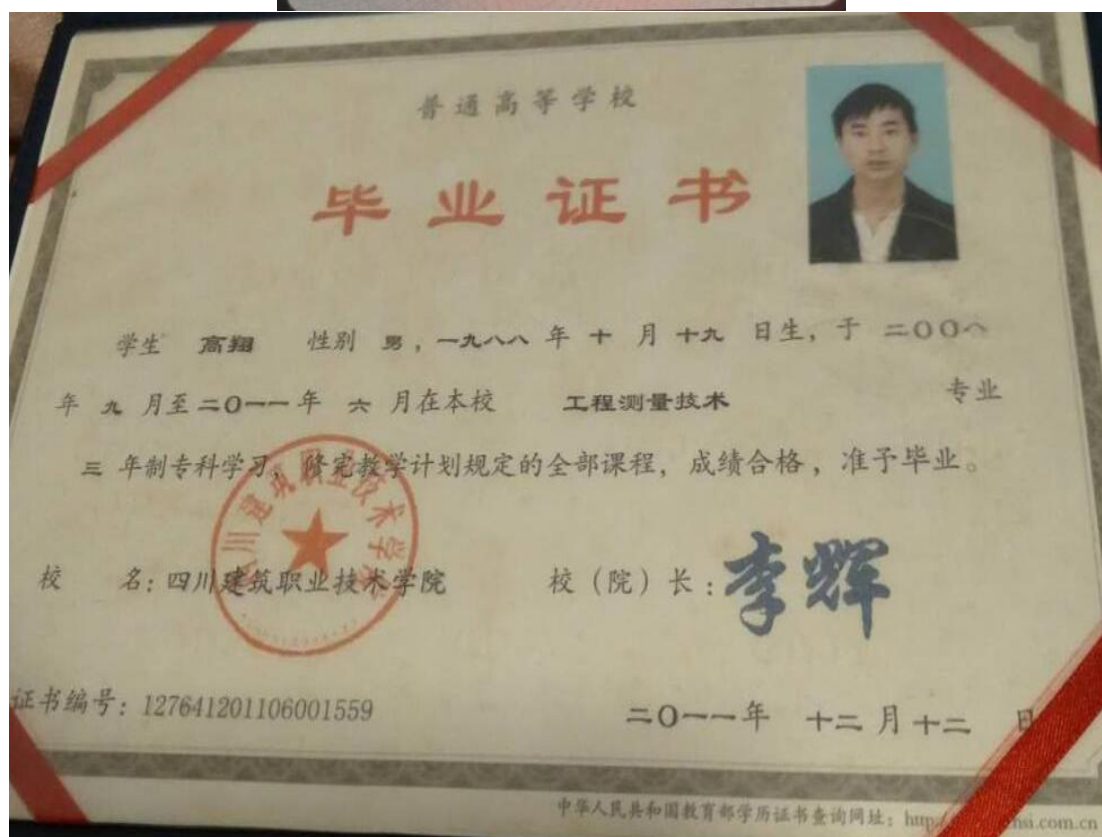 普通高等学校
毕业证书
学生 高翔 性别 男，一九八八 年 十 月 十九 日生，于 二〇〇八
年 九 月至 二〇一一 年 六 月在本校 工程测量技术 专业
三 年制专科学习，修完教学计划规定的全部课程，成绩合格，准予毕业。
四川建筑职业技术学院
校 名：四川建筑职业技术学院 校（院）长：李辉
证书编号：127641201106001559 二〇一一年 十二 月 十二 日
中华人民共和国教育部学历证书查询网址：http hsi.com.cn